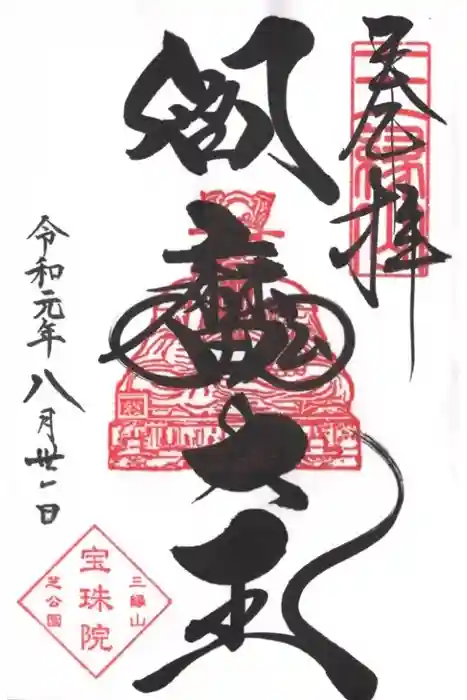 奉拝
閻魔大王
令和元年八月卅一日
三縁山
宝珠院
芝公園